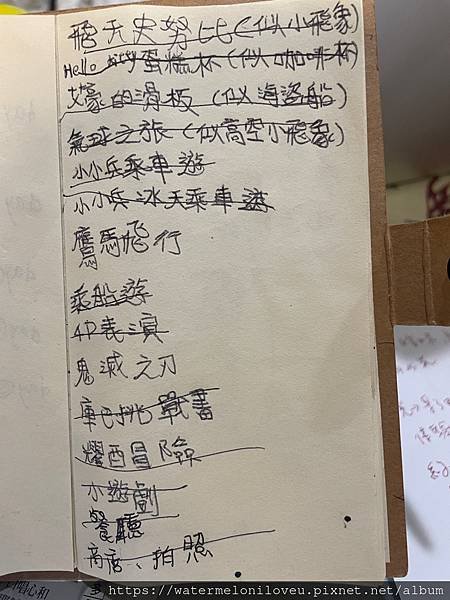 飛天史努比(似小飛象)
Hello kitty蛋糕杯(似咖啡杯)
艾蒙的滑板(似海盜船)
氣球之旅(似高空小飛象)
小小兵乘車遊
小小兵冰天乘車遊
鷹馬飛行
乘船遊
4D表演
鬼滅之刃
庫巴挑戰書
耀西冒險
小遊劇
餐廳
商店、拍照
https://watermeloniloveu.pixnet.net/album